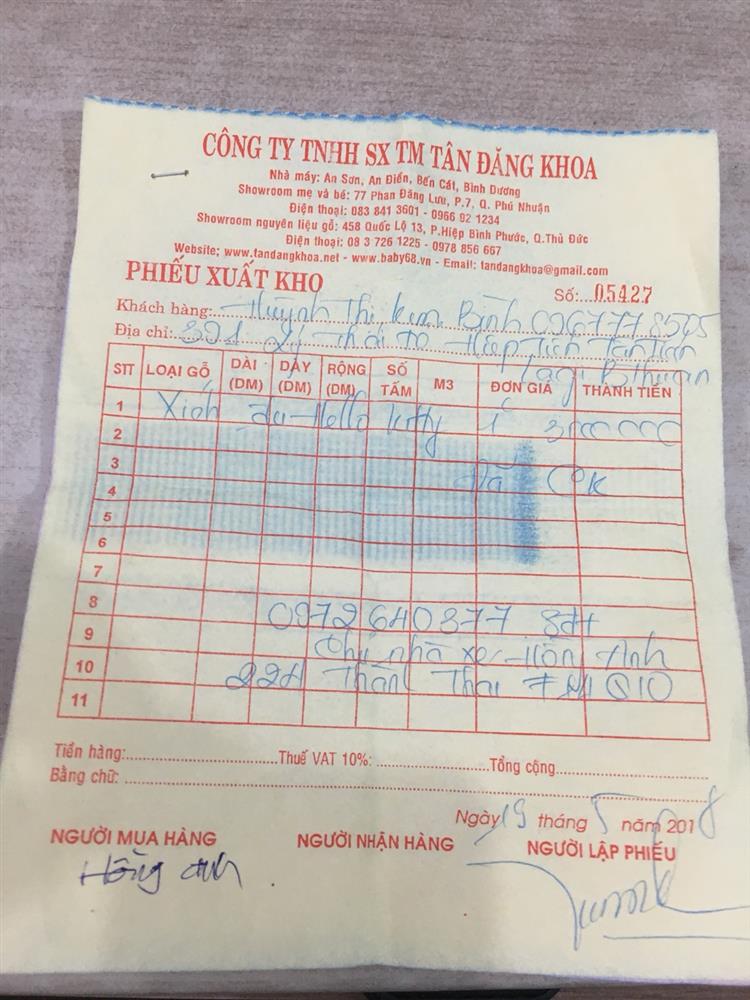 CÔNG TY TNHH SX TM TÂN ĐĂNG KHOA
Nhà máy: An Sơn, An Điền, Bến Cát, Bình Dương
Showroom mẹ và bé: 77 Phan Đăng Lưu, P.7, Q. Phú Nhuận
Điện thoại: 083 841 3601 - 0966 92 1234
Showroom nguyên liệu gỗ: 458 Quốc Lộ 13, P.Hiệp Bình Phước, Q.Thủ Đức
Điện thoại: 08 3 726 1225 - 0978 856 667
Website; www.tandangkhoa.net - www.baby68.vn - Email: tandangkhoa@gmail.com
PHIẾU XUẤT KHO
Số: 05427
Khách hàng: Huỳnh Thị Kim Bình 0967778505
Địa chỉ: Lý Thái Tổ Hiệp Tiến Tân Tiến
Lagi B thuận
STT LOẠI GỖ DÀI (DM) DÀY (DM) RỘNG (DM) SỐ TẤM M3 ĐƠN GIÁ THÀNH TIỀN
1 Xích đu Hello kitty 1 3000000
2
3 Đã CK
4
5
6
7
8 0972640377 sđt
9 Chủ nhà xe Hồn Anh
10 Thành Thái Q10
11
Tiền hàng: Thuế VAT 10%: Tổng cộng
Bằng chữ:
Ngày 19 tháng 5 năm 2018
NGƯỜI MUA HÀNG NGƯỜI NHẬN HÀNG NGƯỜI LẬP PHIẾU
Hồng anh